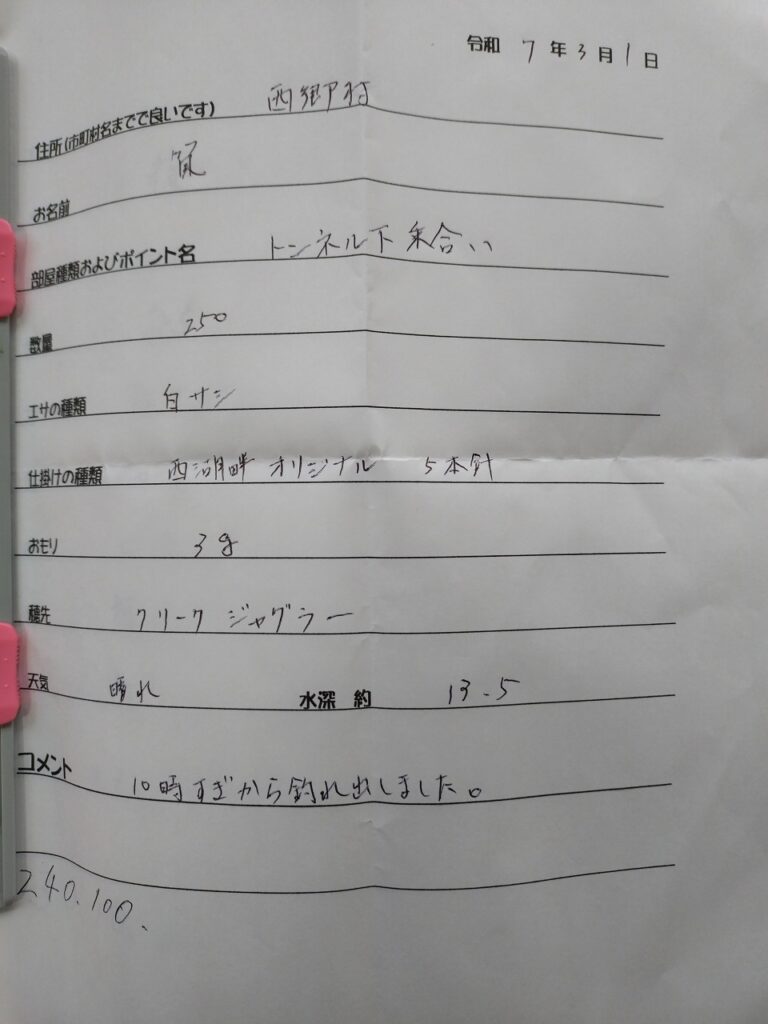 令和 7 年 3 月 1 日
住所(市町村名までで良いです) 西郷村
お名前
部屋種類およびポイント名 トンネル下 乗合い
数量 250
エサの種類 白サシ
仕掛けの種類 西湖畔 オリジナル 5本針
おもり 3g
穂先 クリーク ジャグラー
天気 晴れ 水深 約 13.5
コメント 10時すぎから釣れ出しました。
240.100.